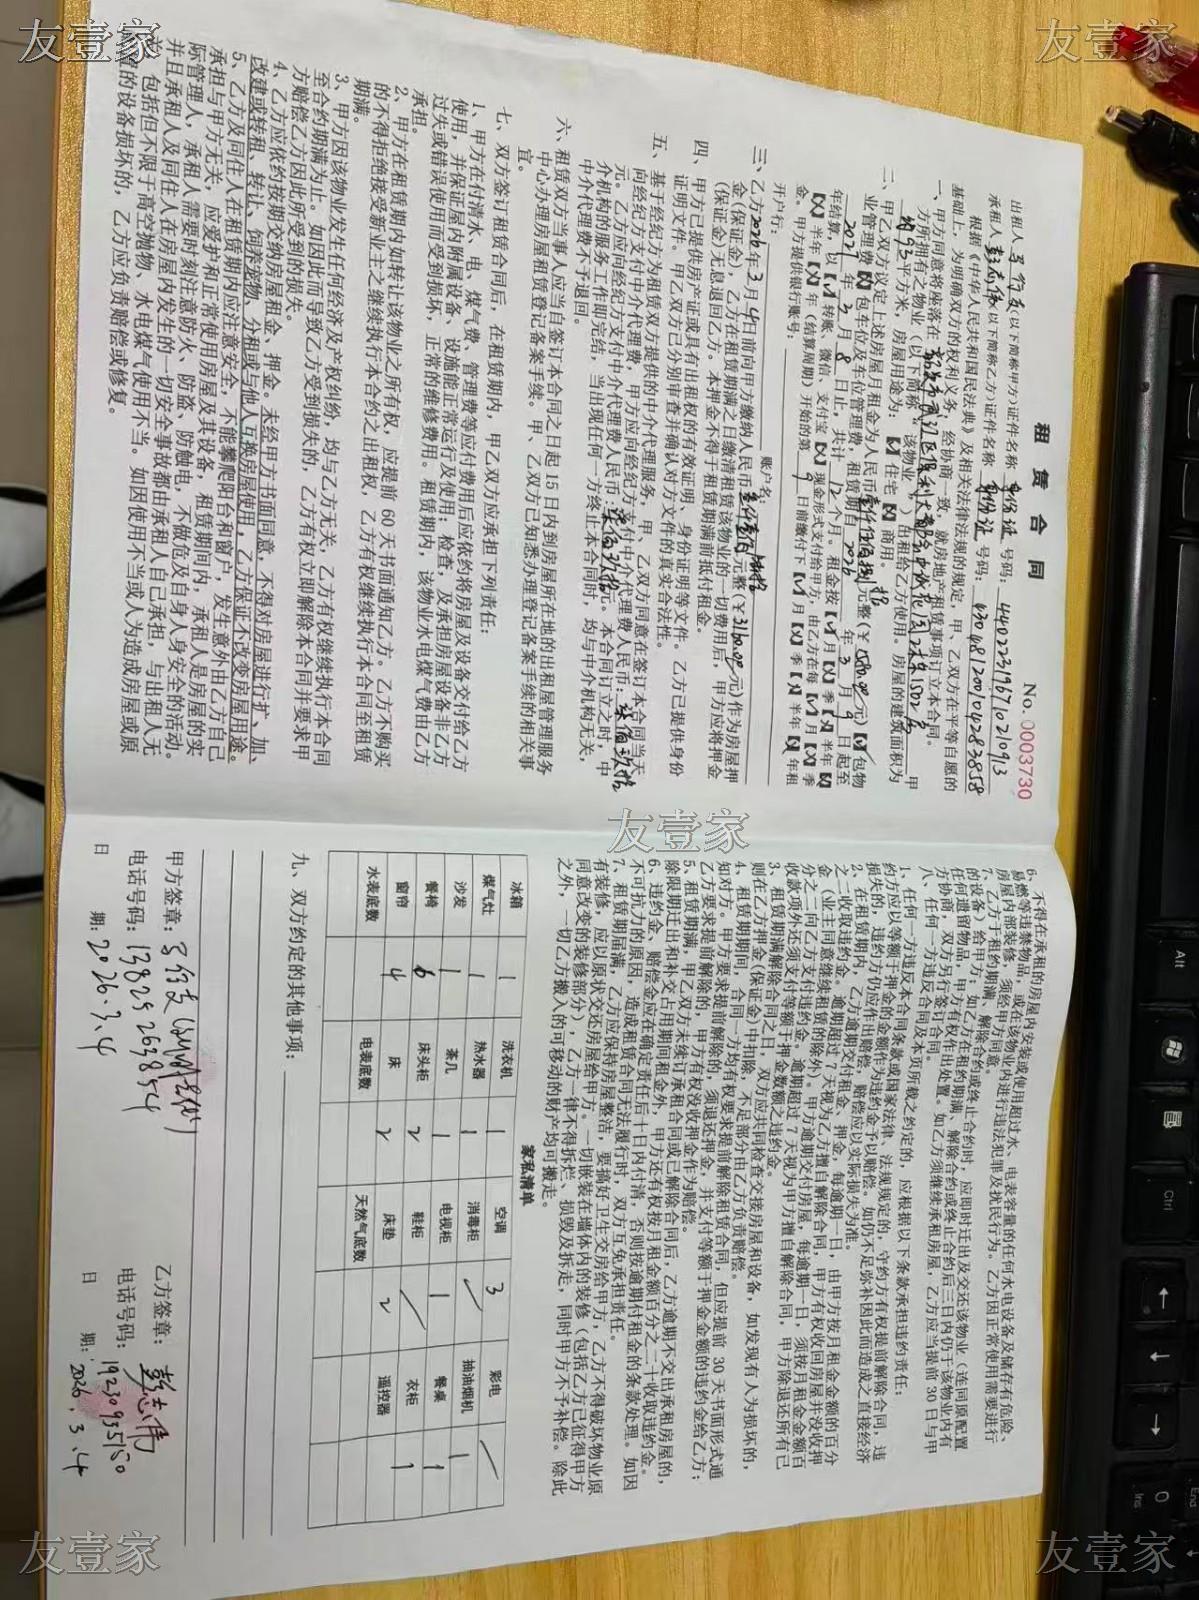 租赁合同
No. 0003730
(以下简称甲方)证件名称 身份证 号码: 440223196710210913
承租人 (以下简称乙方)证件名称 身份证 号码: 430481200104283858
根据《中华人民共和国民法典》及相关法律法规的规定,甲、乙双方在平等自愿的
基础上,为明确双方的权利义务,经协商一致,就房地产租赁事项订立本合同。
一、甲方同意将座落在 甲
方所拥有之物业(以下简称“该物业”)出租给乙方使用。房屋的建筑面积为
约93平方米,房屋用途为:【✓】住宅【✗】商用。
二、甲乙双方议定上述房屋月租金为人民币 元整(¥1580.00元)【✓】包物
业管理费【✗】包车位及车位管理费,租赁期自2026年3月9日起至
2027年3月8日止,共计12个月。租金按【✓】月【✗】季【✗】半年【✗】
年结算,以【✓】转账、微信、支付宝【✗】现金形式支付给甲方,由乙方在每【✓】月【✗】季
【✗】半年【✗】年(结算周期)开始的第9日前缴付下【✓】月【✗】季【✗】半年【✗】年租
金。甲方提供银行账号:
开户行: 账户名:
三、乙方2026年3月4日前向甲方缴纳人民币 元整(¥3160.00元)作为房屋押
金(保证金),乙方在租赁期满之日缴清租赁该物业的一切费用后,甲方应将押金
(保证金)无息退回乙方。本押金不得于租赁期满前抵付租金。
四、甲方已提供房产证或具有出租权的有效证明、身份证明等文件。乙方已提供身份
证明文件。甲乙双方已分别审查并确认对方文件的真实合法性。
五、基于经纪方为租赁双方提供的中介代理服务,甲、乙双方同意在签订本合同当天
向经纪方支付中介代理费,甲方应向经纪方支付中介代理费人民币:柒佰玖拾
元。乙方应向经纪方支付中介代理费人民币:柒佰玖拾元。本合同订立之时,中
介机构的服务工作即完结,当出现任何一方终止本合同时,均与中介机构无关,
中介代理费不予退回。
六、租赁双方当事人应当自签订本合同之日起15日内到房屋所在地的出租屋管理服务
中心办理房屋租赁登记备案手续。甲、乙双方已知悉办理登记备案手续的相关事
宜。
七、双方签订租赁合同后,在租赁期内,甲乙双方应承担下列责任:
1、甲方在付清水、电、煤气费、管理费等应付费用后应依约将房屋及设备交付给乙方
使用,并保证屋内附属设备、设施能正常运行及使用;检查,及承担房屋设备非乙方
过失或错误使用而受到损坏、正常的维修费用。租赁期内,该物业水电煤气费由乙方
承担。
2、甲方在租赁期内如转让该物业之所有权,应提前60天书面通知乙方。乙方不购买
的不得拒绝接受新业主之继续执行本合约之出租权,乙方有权继续执行本合同至租赁
期满。
3、甲方因该物业发生任何经济及产权纠纷,均与乙方无关,乙方有权继续执行本合同
至合约期满为止。如因此而导致乙方受到损失的,乙方有权立即解除本合同并要求甲
方赔偿乙方因此所受到的损失。
4、乙方应依约按期交纳房屋租金、押金。未经甲方书面同意,不得对房屋进行扩、加、
改建或转租、转让、饲养宠物、分租或与他人互换房屋使用,乙方保证不改变房屋用途。
5、乙方及同住人在租赁期内应注意安全,不能攀爬阳台和窗户,发生意外由乙方自己
承担与甲方无关,应爱护和正常使用房屋及其设备,租赁期间内,承租人是房屋的实
际管理人,承租人需要时刻注意防火、防盗、防触电,不做危及自身人身安全的活动。
并且承租人及同住人在房屋内发生的一切安全事故都由承租人自己承担,与出租人无
关。包括但不限于高空抛物、水电煤气使用不当。如因使用不当或人为造成房屋或原
配置的设备损坏的,乙方应负责赔偿或修复。
6、不得在承租的房屋内安装或使用超过水、电表容量的任何水电设备及储存有危险、
易燃等违禁物品,或在该物业内进行违法犯罪及扰民行为。乙方因正常使用需要进行
房屋内部装修,须经甲方同意。
7、乙方于租约期满、解除合约或终止合约时,应即时迁出及交还该物业(连同原配置
的设备)给甲方;如乙方在租约期满、解除合约或终止合约后三日内仍于该物业内有
任何遗留物品,甲方有权作出处置。如乙方须继续承租房屋,乙方应当提前30日与甲
方协商,双方另行签订合同。
八、任何一方违反合同及本页所载之约定的,应根据以下条款承担违约责任:
1、任何一方违反本合同条款或国家法律、法规规定的,守约方有权提前解除合同,违
约方应以等额于押金的金额作为违约金予以赔偿。如仍不足弥补因此而造成之直接经济
损失的,违约方仍应作出赔偿,赔偿应以实际损失为准。
2、在租赁期内,乙方逾期交付租金、押金,每逾期一日,由甲方按月租金金额的百分
之二收取违约金。逾期超过7天视为乙方擅自解除合同,甲方有权收回房屋并没收押
金(业主同意继续租赁的除外)。甲方逾期交付房屋,每逾期一日,须按月租金金额百
分之二向乙方支付违约金,逾期超过7天视为甲方擅自解除合同,甲方除退还所有已
收款项外还须支付等额于押金数额之违约金。
3、租赁期满解除合同之日,双方应共同检查交接房屋和设备,如发现有人为损坏的,
则在乙方押金(保证金)中扣除,不足部分由乙方负责赔偿。
4、租赁期期间,合同一方均有权要求提前解除租赁合同,但应提前30天书面形式通
知对方。甲方要求提前解除的,须退还押金,并支付等额于押金金额的违约金给乙方;
乙方要求提前解除的,甲方有权没收押金作为赔偿。
5、租赁期满,甲乙双方未续订承租合同或已解除合同后,乙方逾期不交出承租房屋的,
除限期迁出和补交占用期间租金外,甲方还有权按月租金额百分之二十收取违约金。
6、违约金、赔偿金应在确定责任后十日内付清,否则按逾期付租金的条款处理。如因
不可抗力的原因,造成租赁合同无法履行时,双方互免承担责任。
7、租赁期届满,乙方应保持房屋整洁,要搞好卫生交房给甲方,乙方不得破坏物业原
有装修,应以原状交还房屋给甲方。一切嵌装在墙体内的装修(包括乙方已征得甲方
同意改变的装修部分),乙方一律不得拆烂、损毁及拆走,同时甲方不予补偿。除此
之外,一切乙方搬入的可移动的财产均可搬走。
家私清单
冰箱 1 洗衣机 1 空调 3 彩电 /
煤气灶 1 热水器 1 消毒柜 / 抽油烟机 1
沙发 1 茶几 1 电视柜 1 餐桌 1
餐椅 6 床头柜 2 鞋柜 / 衣柜 1
窗帘 4 床 2 床垫 2 遥控器
水表底数 电表底数 天然气底数
九、双方约定的其他事项:
甲方签章: 乙方签章:
电话号码:13825263854 电话号码:19230935150
日 期:2026.3.4 日 期:2026.3.4
Alt
Ctrl
0
Ins
友壹家
友壹家
友壹家
友壹家
友壹家
友壹家